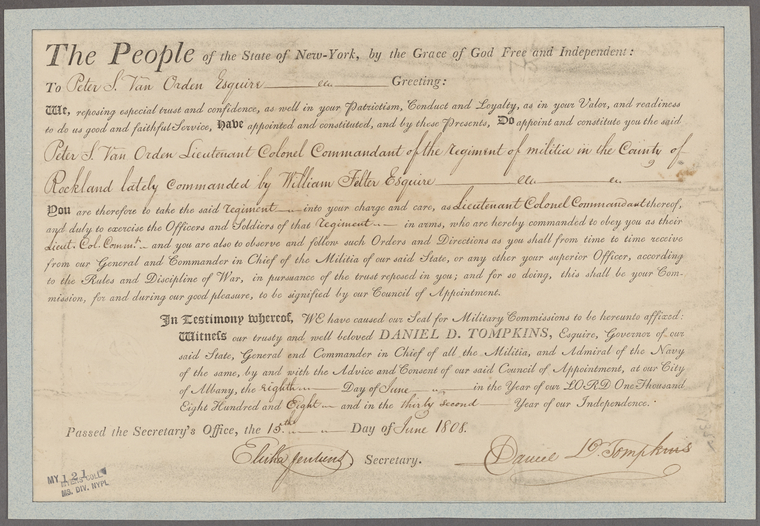 The People of the State of New-York, by the Grace of God Free and Independent:
To Peter S. Van Orden Esquire Greeting:
We, reposing especial trust and confidence, as well in your Patriotism, Conduct and Loyalty, as in your Valor, and readiness
to do us good and faithful Service, Have appointed and constituted, and by these Presents, Do appoint and constitute you the said
Peter S. Van Orden Lieutenant Colonel Commandant of the regiment of militia in the County of
Rockland lately commanded by William Felter Esquire
You are therefore to take the said regiment into your charge and care, as Lieutenant Colonel Commandant thereof,
and duty to exercise the Officers and Soldiers of that regiment in arms, who are hereby commanded to obey you as their
Lieut. Col. Commt. and you are also to observe and follow such Orders and Directions as you shall from time to time receive
from our General and Commander in Chief of the Militia of our said State, or any other your superior Officer, according
to the Rules and Discipline of War, in pursuance of the trust reposed in you; and for so doing, this shall be your Com-
mission, for and during our good pleasure, to be signified by our Council of Appointment.
In Testimony whereof, WE have caused our Seal for Military Commissions to be hereunto affixed:
Witness our trusty and well beloved DANIEL D. TOMPKINS, Esquire, Governor of our
said State, General and Commander in Chief of all the Militia, and Admiral of the Navy
of the same, by and with the Advice and Consent of our said Council of Appointment, at our City
of Albany, the eighth Day of June in the Year of our LORD One Thousand
Eight Hundred and Eight and in the thirty second Year of our Independence.
Passed the Secretary's Office, the 15th Day of June 1808.
Elisha Jenkins Secretary. Daniel D. Tompkins
MY 121
MS. DIV. NYPL